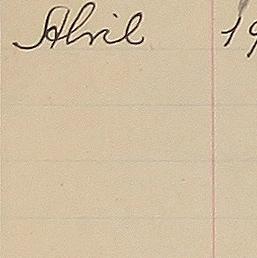 April 19